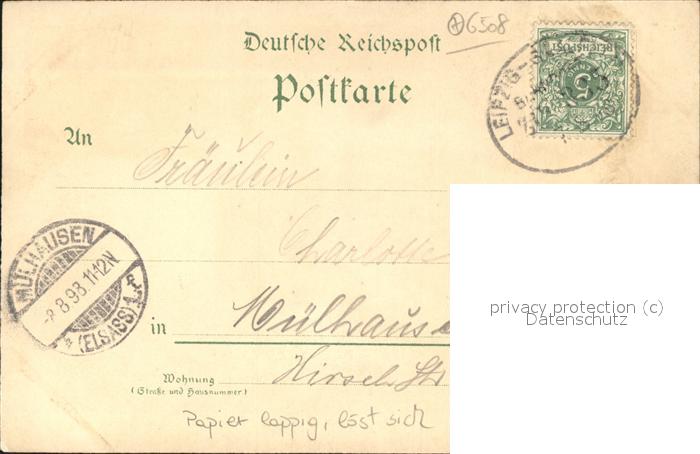 ⊕6508
Deutsche Reichspost
Postkarte
REICHSPOST
5
LEIPZIG
An
Fräulein
Charlotte
MÜLHAUSEN
8.98.11-12N
(ELSASS) 1.f
in Mülhause
Wohnung
(Straße und Hausnummer)
Hirsch Str
Papier lappig, löst sich
privacy protection (c)
Datenschutz